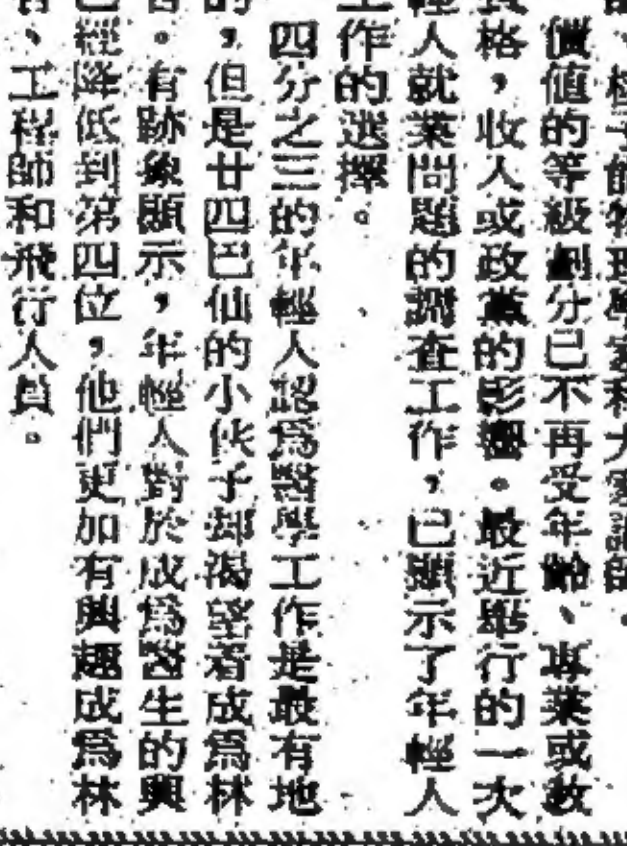 的、核子的物理學家和大學講師。
價值的等級劃分已不再受年齡、專業或教
資格，收入或政黨的影響。最近舉行的一次
輕人就業問題的調查工作，已顯示了年輕人
工作的選擇。
四分之三的年輕人認爲醫學工作是最有地
的，但是廿四巴仙的小伙子却渴望着成爲林
者。有跡象顯示，年輕人對於成爲醫生的興
已經降低到第四位，他們更加有興趣成爲林
者、工程師和飛行人員。